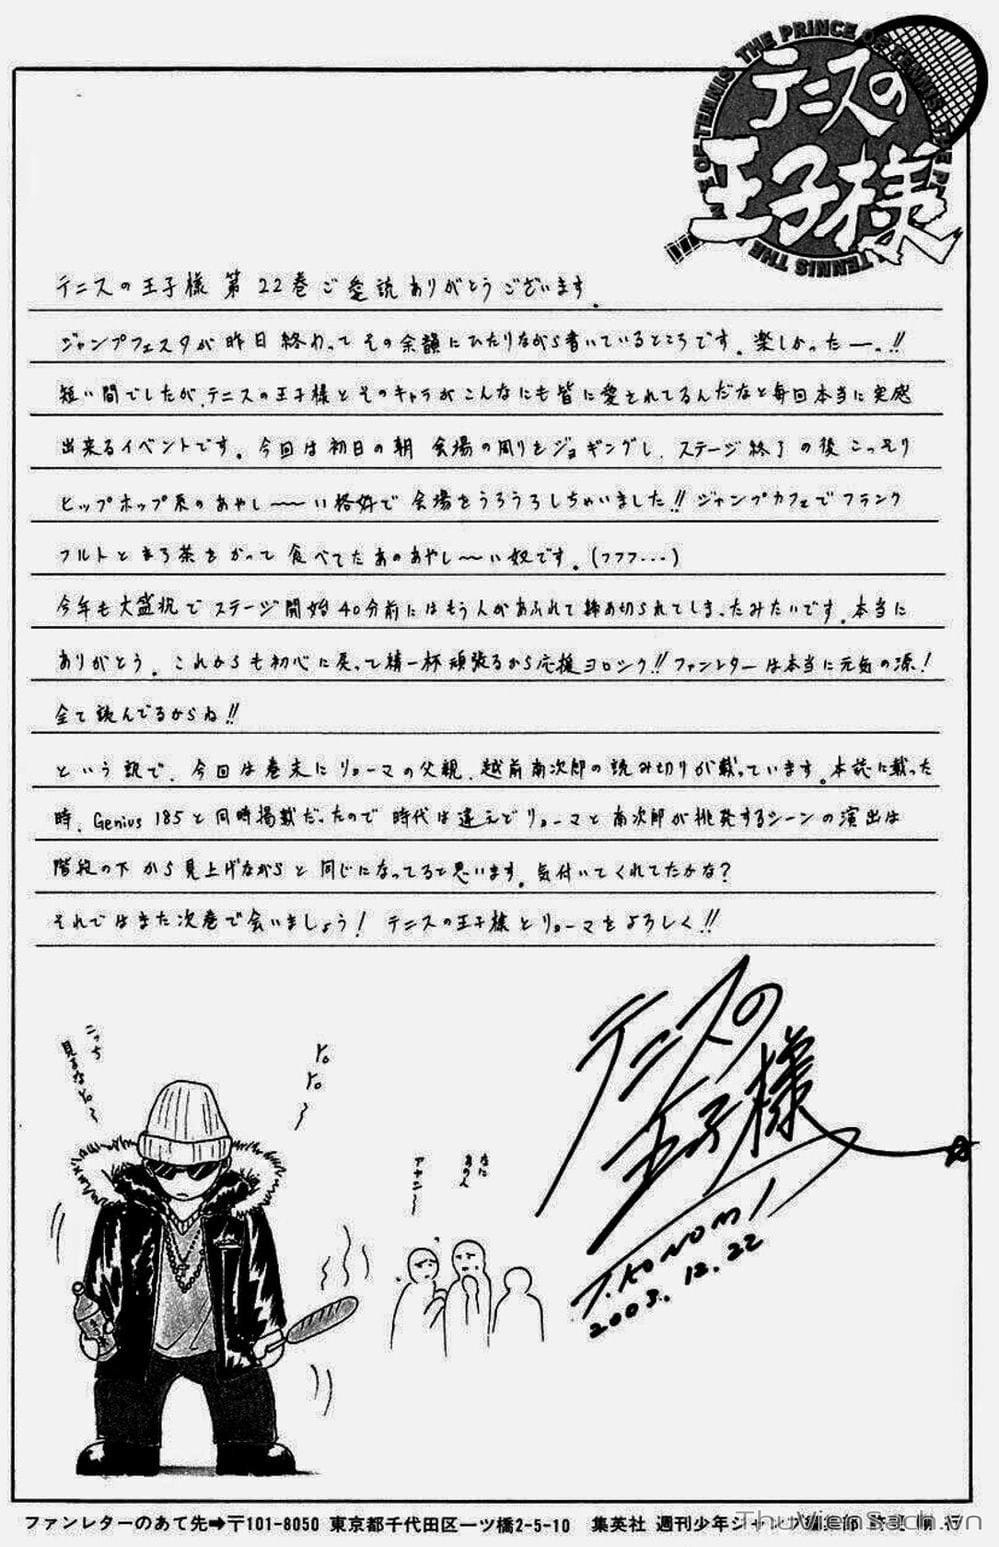 THE PRINCE OF TENNIS
テニスの
王子様
テニスの王子様 第22巻ご愛読ありがとうございます。
ジャンプフェスタが昨日終わってその余韻にひたりながら書いているところです。楽しかったーっ!!
短い間でしたが、テニスの王子様とそのキャラがこんなにも皆に愛されてるんだなと毎回本当に実感
出来るイベントです。今回は初日の朝 会場の周りをジョギングし、ステージ終了の後こっそり
ヒップホップ系のあやし〜〜い格好で会場をうろうろしちゃいました!! ジャンプカフェでフランク
フルトとまろ茶をかって食べてたあのあやし〜〜い奴です。(フフフ...)
今年も大盛況でステージ開始40分前にはもう人があふれて締め切られてしまったみたいです。本当に
ありがとう。これからも初心に戻って精一杯頑張るから応援ヨロシク!! ファンレターは本当に元気の源!
全て読んでるからね!!
という訳で、今回は巻末にリョーマの父親、越前南次郎の読み切りが載っています。本誌に載った
時、Genius 185と同時掲載だったので時代は違えどリョーマと南次郎が挑発するシーンの演出は
階段の下から見上げながらと同じになってると思います。気付いてくれてたかな?
それではまた次巻で会いましょう! テニスの王子様とリョーマをよろしく!!
こっち
見るなYo〜
Yo
Yo〜
なに
あの人
アヤシ〜
テニスの
王子様
T.KONOMI
2003.12.22
ファンレターのあて先➡〒101-8050 東京都千代田区一ツ橋2-5-10 集英社 週刊少年ジャンプ
ThuVienSach.vn